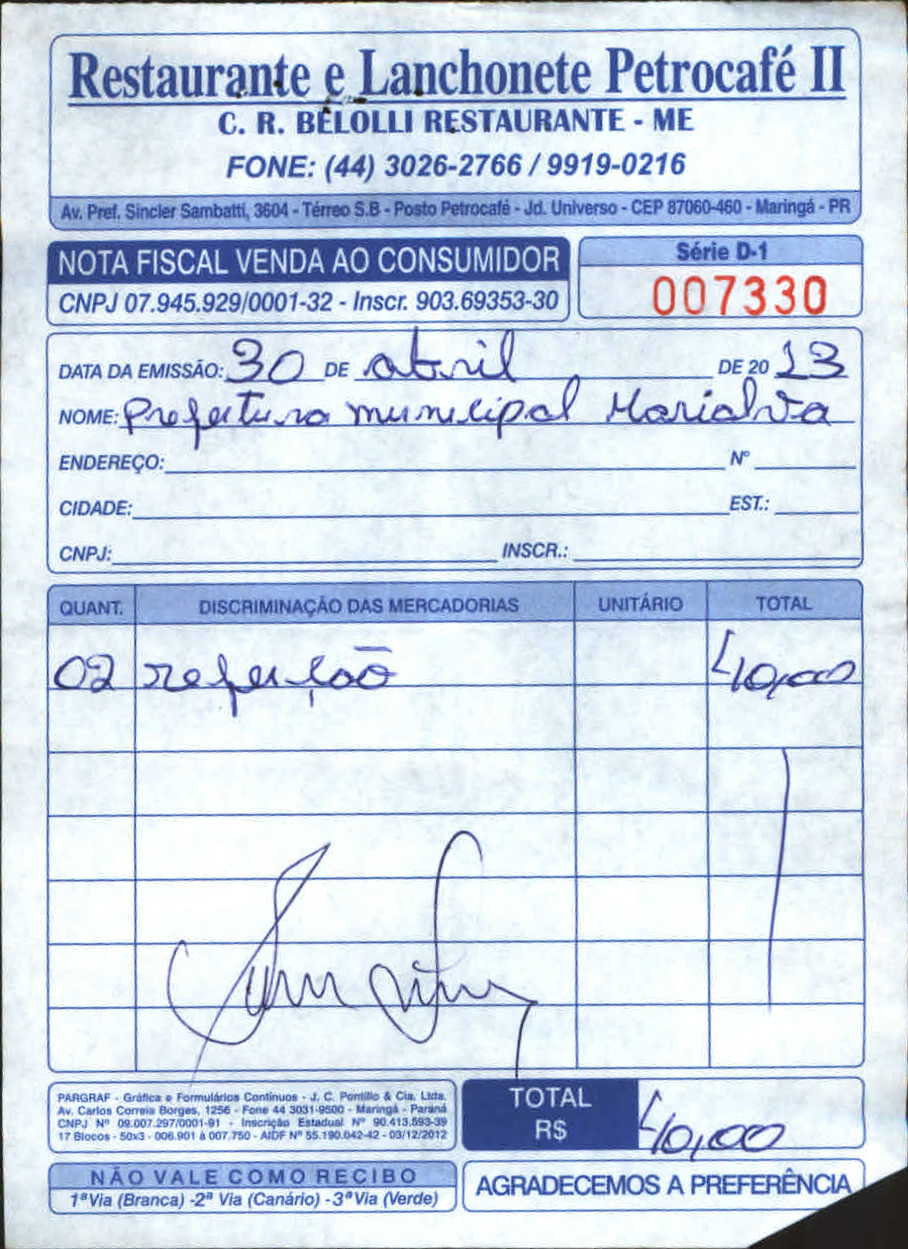 Restaurante e Lanchonete Petrocafé II
C. R. BELOLLI RESTAURANTE - ME
FONE: (44) 3026-2766 / 9919-0216
Av. Pref. Sincler Sambatti, 3604 - Térreo S.B - Posto Petrocafé - Jd. Universo - CEP 87060-460 - Maringá - PR
NOTA FISCAL VENDA AO CONSUMIDOR
CNPJ 07.945.929/0001-32 - Inscr. 903.69353-30
Série D-1
007330
DATA DA EMISSÃO: 30 DE abril DE 20 13
NOME: Prefeitura municipal Marialva
ENDEREÇO: Nº
CIDADE: EST.:
CNPJ: INSCR.:
QUANT. DISCRIMINAÇÃO DAS MERCADORIAS UNITÁRIO TOTAL
02 refeição 40,00
PARGRAF - Gráfica e Formulários Contínuos - J. C. Portillo & Cia. Ltda.
Av. Carlos Correia Borges, 1256 - Fone 44 3031-9500 - Maringá - Paraná
CNPJ Nº 09.007.297/0001-91 - Inscrição Estadual Nº 90.413.593-39
17 Blocos - 50x3 - 006.901 à 007.750 - AIDF Nº 55.190.042-42 - 03/12/2012
TOTAL R$ 40,00
NÃO VALE COMO RECIBO
1ª Via (Branca) - 2ª Via (Canário) - 3ª Via (Verde)
AGRADECEMOS A PREFERÊNCIA